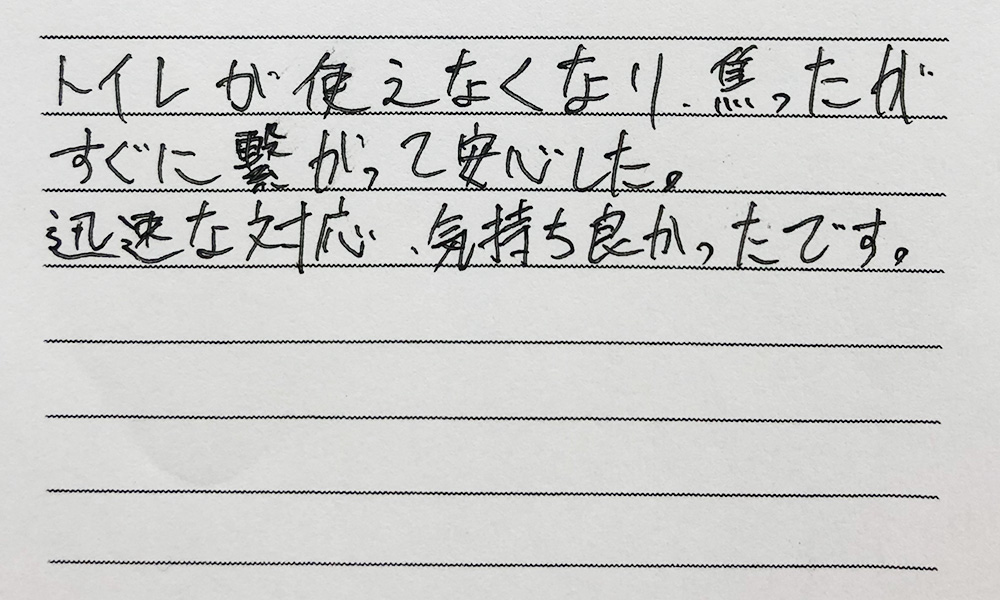 トイレが使えなくなり、焦ったが
すぐに繋がって安心した。
迅速な対応、気持ち良かったです。